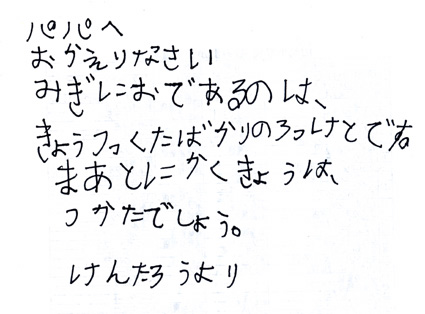 パパへ
おかえりなさい
みぎにおであるのは、
きょうフくたばかりのろっけとです
まあとにかくきょうは、
つかたでしょう。
けんたろうより